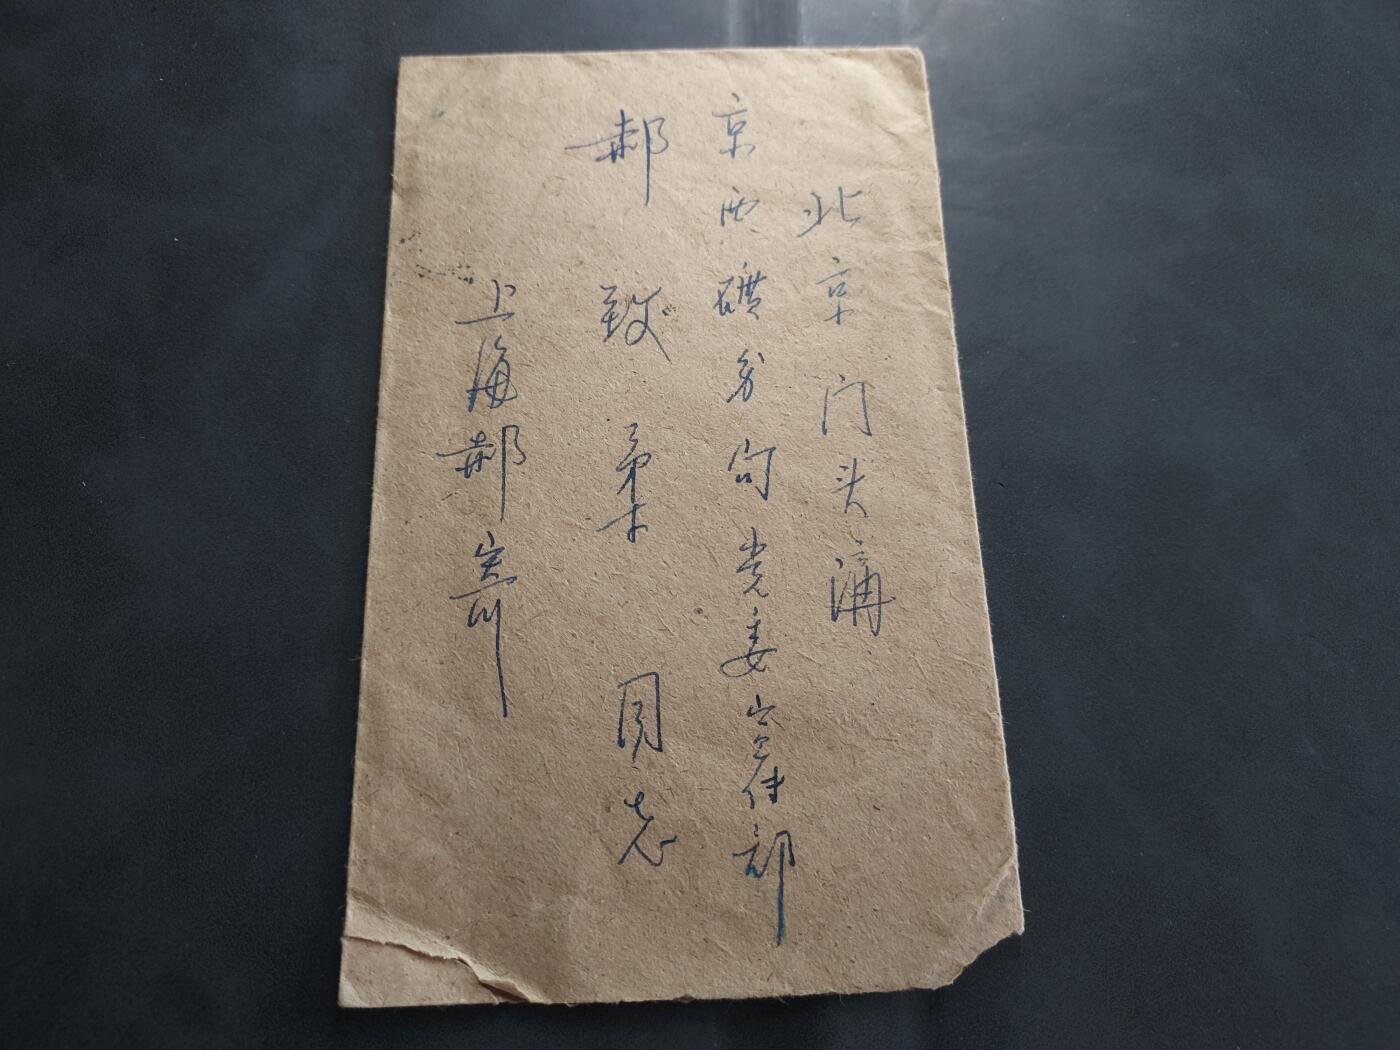 北京门头溝
京西礦务局党委宣传部
郝致柔同志
上海郝寄